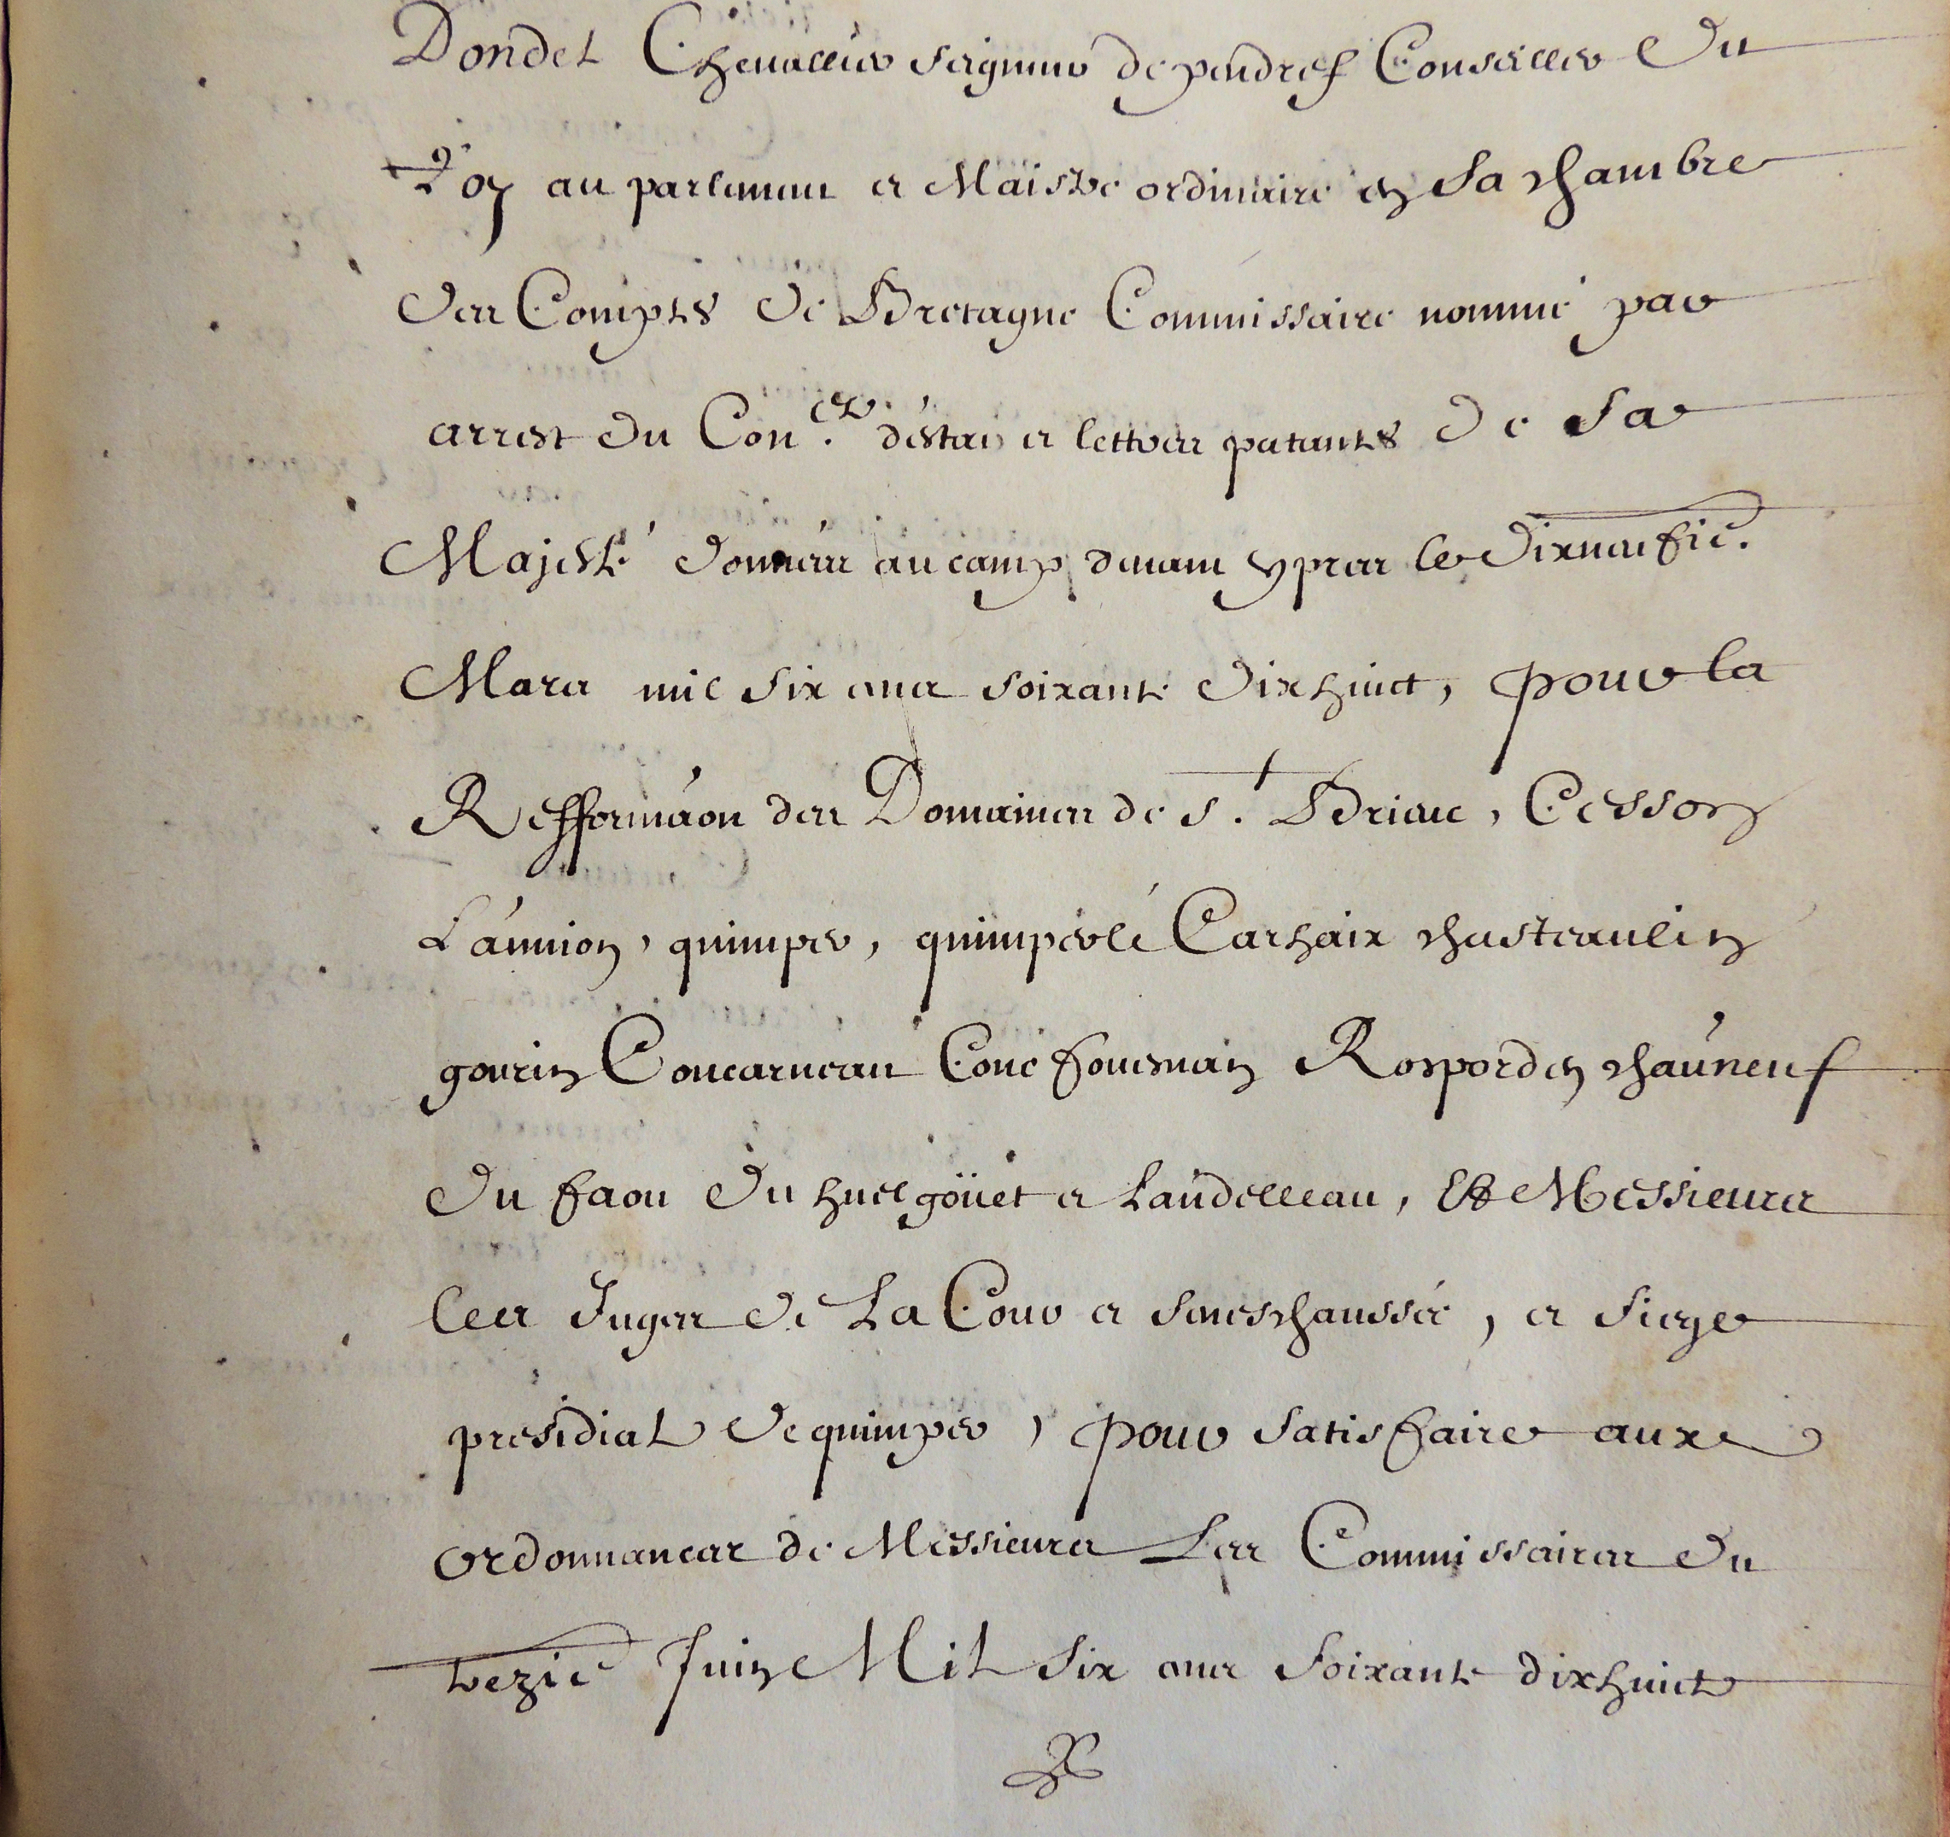 Dondel Chevallier seigneur de pendref Conseiller du
Roy au parlement et Maistre ordinaire en sa chambre
des Comptes de Bretagne Commissaire nommé par
arrest du Con.el d'estat et lettres patantes de Sa
Majesté données au camp devant ypres le dixneufie.
Mars mil six cens soixante dixhuict, pour la
Refformãon des Domaines de St. Brieuc, Cesson
Lannion, quimper, quimperlé Carhaix chasteaulin
gourin Concarneau Conc fouesnan Rosporden chauneuf
du faou du huelgoüet et Landelleau, Et Messieurs
les Juges de La Cour et seneschaussée, et siege
presidial de quimper, pour satisfaire aux
ordonnances de Messieurs Les Commissaires du
trezie Juin Mil six cens soixante dixhuict